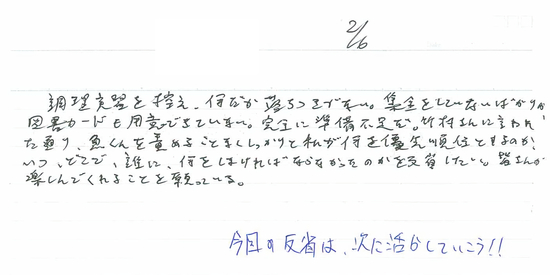 2/6
調理実習を控え、何だか落ちつきがない。集金をしていないばかりか
図書カードも用意できていない。完全に準備不足だ。竹村さんに言われ
た通り、魚くんを責めることをしっかりと私が何を優先順位とするのか、
いつ、どこで、誰に、何をしなければならなかったのかを反省したい。皆さんが
楽しんでくれることを願っている。
今日の反省は、次に活かしていこう!!